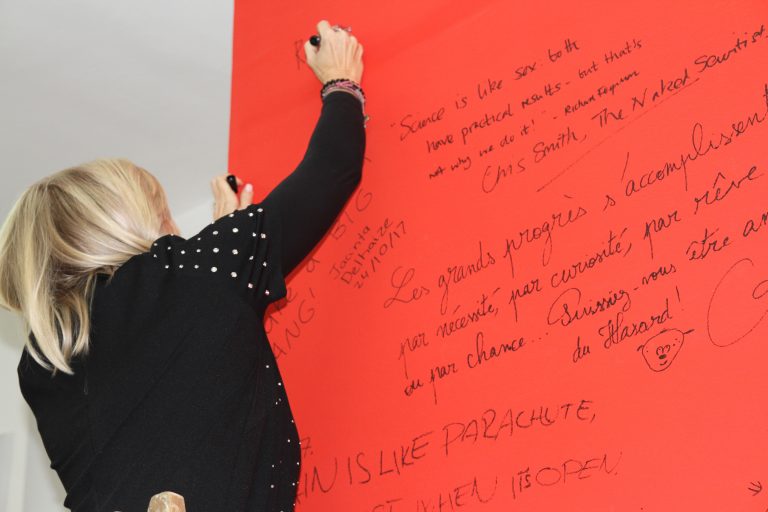 R
"Science is like sex: both
have practical results - but that's
not why we do it!" - Richard Feynman
Chris Smith, The Naked Scientist.
BIG
BANG!
Jacinta
Delhaize
24/10/17
Les grands progrès s'accomplissent
par nécessité, par curiosité, par rêve
ou par chance... Puissiez-vous être am
du Hasard!
IN IS LIKE PARACHUTE,
WHEN It's OPEN.